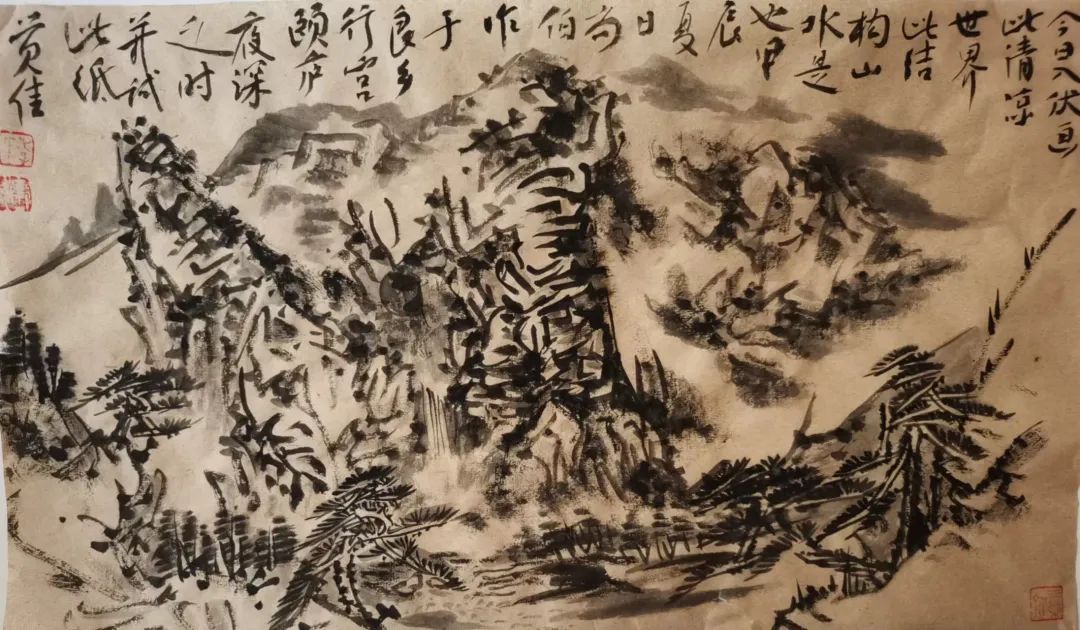 今日入伏画
此清凉
世界
此结
构山
水是
也甲
辰
夏
日
尚
伯
作
于
良乡
行宫
颐庐
夜深
之时
并试
此纸
黄佳